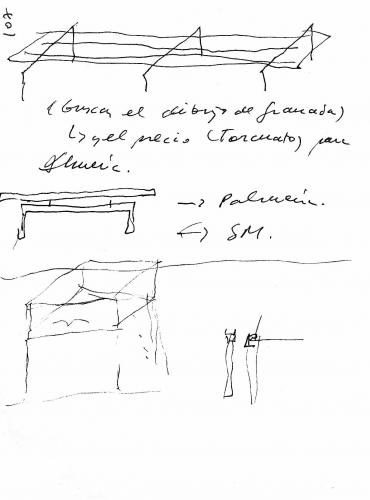 107
(buscar el dibujo de Granada)
↳ y el precio (Torcuato) para
Almería.
→ Palmería.
↔ SM.